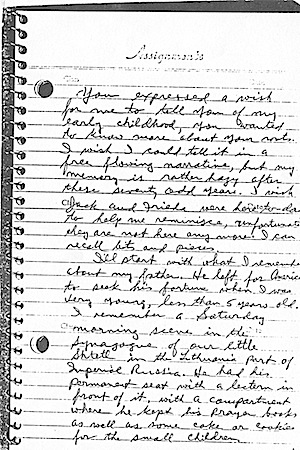 Assignments
You expressed a wish
for me to tell you of my
early childhood, you wanted
to know more about your roots.
I wish I could tell it in a
free flowing narrative, but my
memory is rather hazy after
these seventy odd years. I wish
Jack and Frieda were here to
help me reminisce, unfortunately
they are not here any more. I can
recall bits and pieces.
I'll start with what I remember
about my father. He left for America
to seek his fortune when I was
very young, less than 5 years old.
I remember a Saturday
morning scene in the
Synagogue of our little
Shtetl in the Lithuania part of
Imperial Russia. He had his
permanent seat with a lectern in
front of it, with a compartment
where he kept his prayer books
as well as some cake or cookies
for the small children.